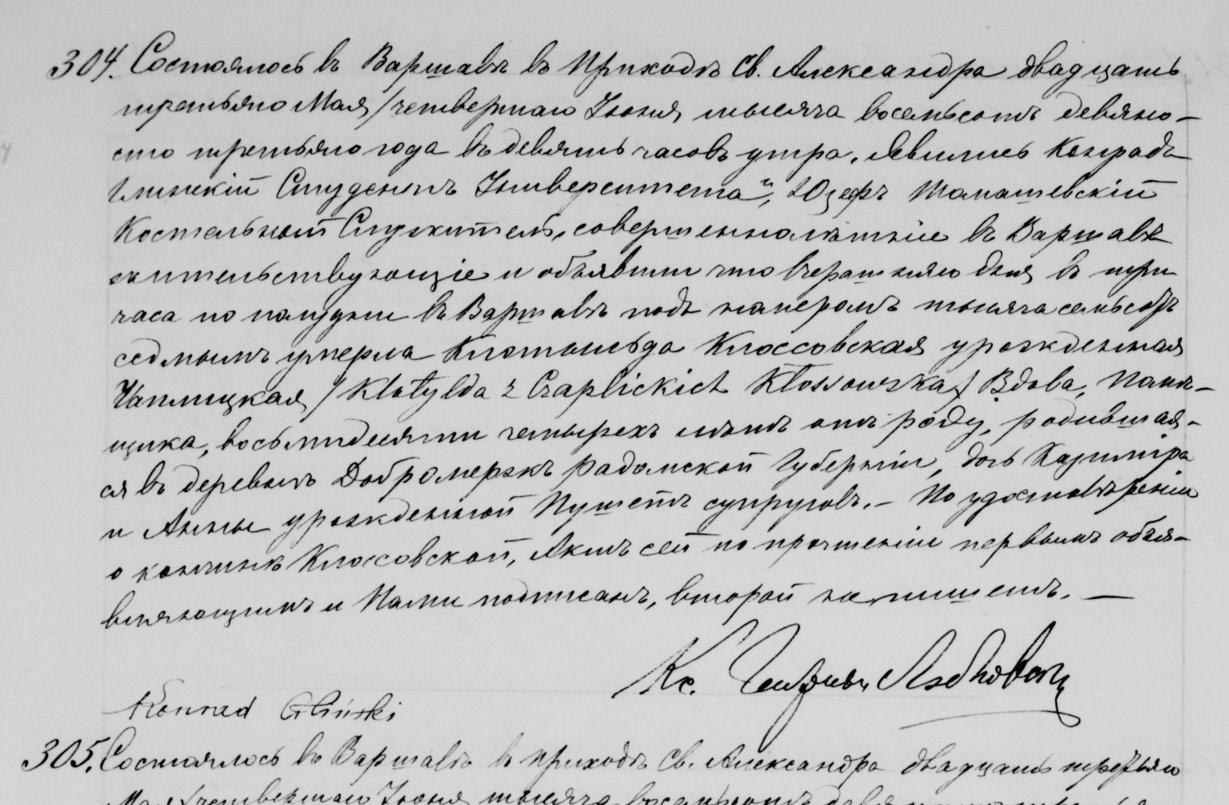 304. Состоялось въ Варшавѣ въ Приходѣ Св. Александра двадцать
третьяго Мая / четвертаго Іюня тысяча восемьсотъ девяно-
сто третьяго года въ девять часовъ утра. Явились Конрадъ
Глинскій Студентъ Университета и Юзефъ Томашевскій
Костельный Служитель, совершеннолѣтніе въ Варшавѣ
жительствующіе и объявили что вчерашняго дня въ три
часа по полудни въ Варшавѣ подъ номеромъ тысяча семьсотъ
седмымъ умерла Клотильда Клоссовская урожденная
Чаплицкая / Klotylda z Czaplickich Kłossowska / Вдова, Помѣ-
щика, восьмидесяти четырехъ лѣтъ отъ роду, родившая-
ся въ деревнѣ Добромержъ Радомской Губерніи, дочь Казиміра
и Анны урожденной Пушетъ супруговъ. — По удостовѣреніи
о кончинѣ Клоссовской, Актъ сей по прочтеніи первымъ объя-
вляющимъ и Нами подписанъ, второй не пишетъ. —
Кс.
Konrad Gliński
305. Состоялось въ Варшавѣ въ приходѣ Св. Александра двадцать третьяго
Мая / четвертаго Іюня тысяча восемьсотъ